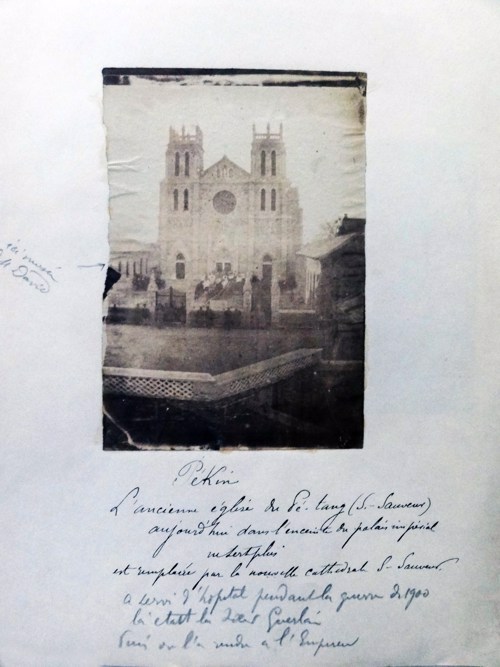 Pékin
L'ancienne église du Pé-tang (St-Sauveur)
aujourd'hui dans l'enceinte du palais impérial
ne sert plus
est remplacée par la nouvelle cathédrale St-Sauveur
a servi d'hôpital pendant la guerre de 1900
là était la Sœur Guerlain
Puis on l'a rendue à l'Empereur
David